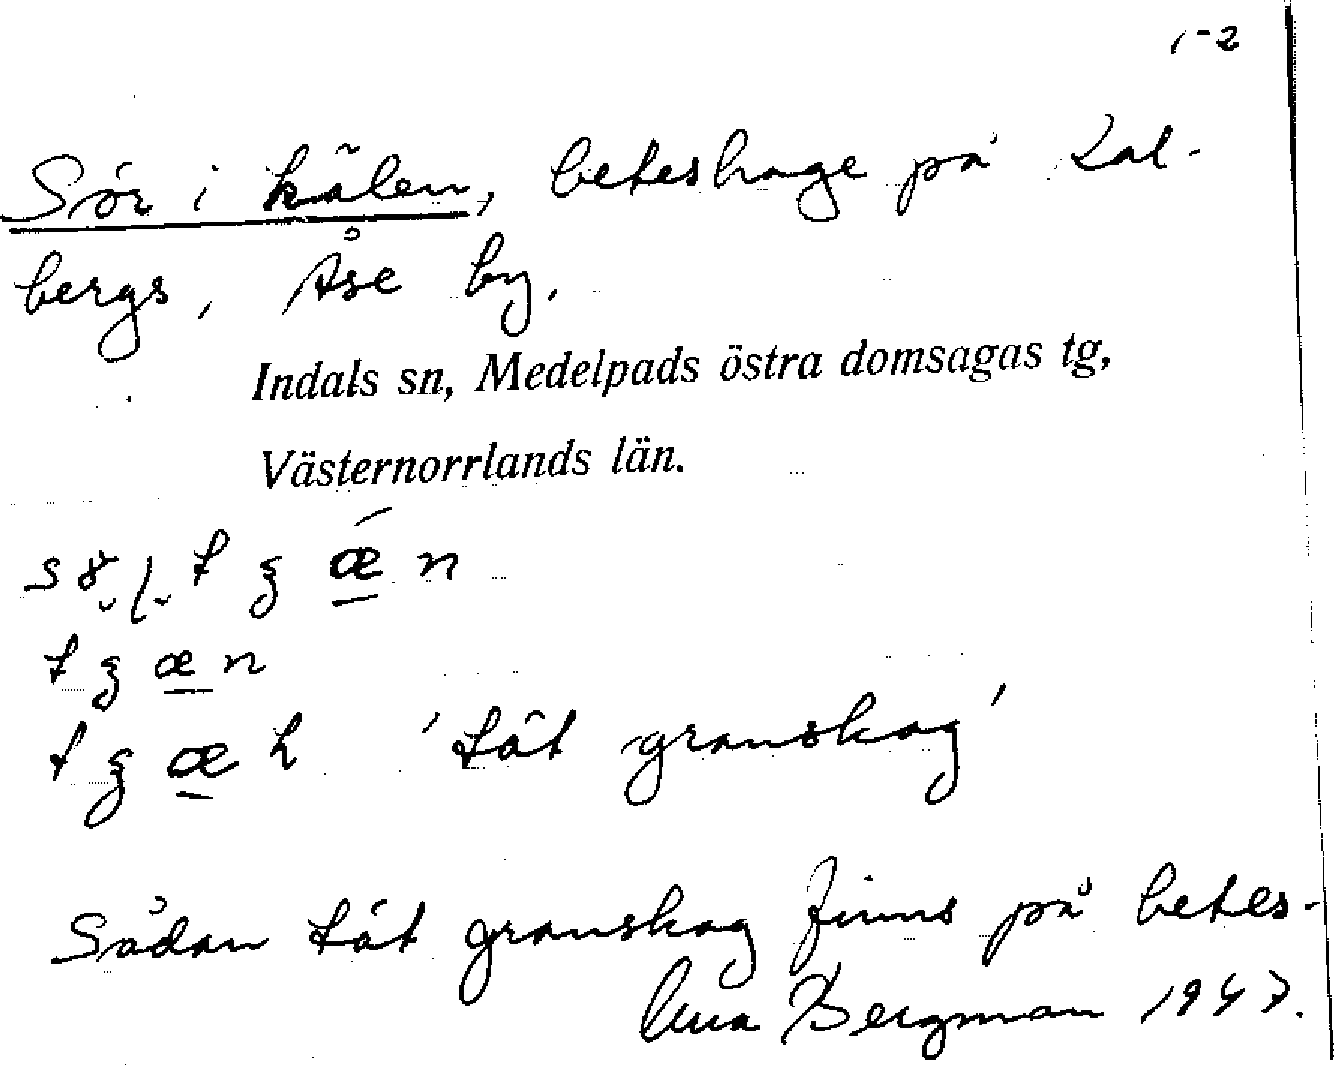 1-2
Sör i kälen, beteshage på Kal-
bergs, Åse by.
Indals sn, Medelpads östra domsagas tg,
Västernorrlands län.
'tät granskog'
Sådan tät granskog finns på betes-
Bergman 1947.